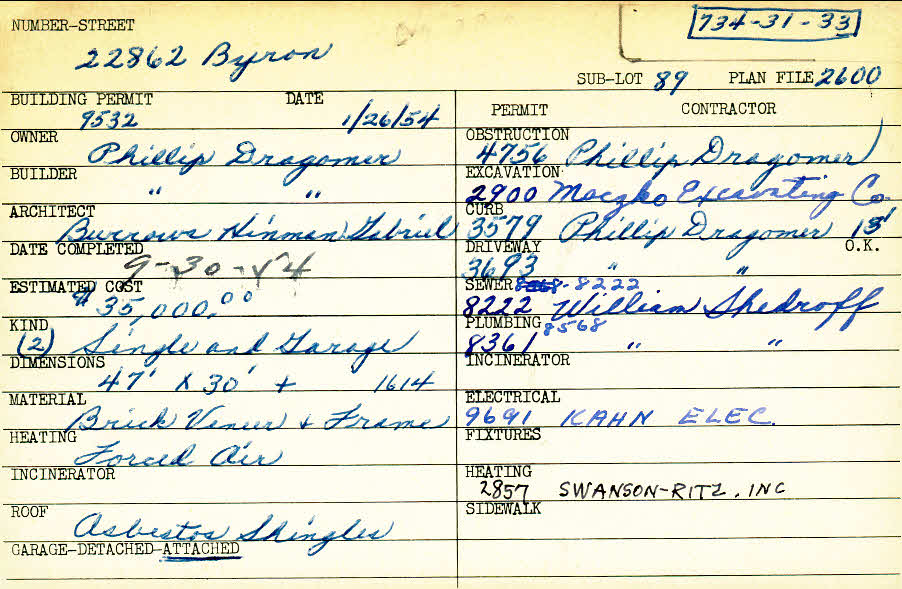 734-31-33
NUMBER-STREET
22862 Byron
SUB-LOT 89 PLAN FILE 2600
BUILDING PERMIT DATE
9532 1/26/54
OWNER
Phillip Dragomer
BUILDER
" "
ARCHITECT
Burrows Hinman Gabriel
DATE COMPLETED
9-30-54
ESTIMATED COST
$35,000.00
KIND
(2) Single and Garage
DIMENSIONS
47' x 30' + 1614
MATERIAL
Brick Veneer + Frame
HEATING
Forced Air
INCINERATOR
ROOF
Asbestos Shingles
GARAGE-DETACHED-ATTACHED
PERMIT CONTRACTOR
OBSTRUCTION
4756 Phillip Dragomer
EXCAVATION
2900 Moczko Excavating Co.
CURB
3579 Phillip Dragomer 13'
DRIVEWAY O.K.
3693 " "
SEWER 8222
8222 William Shedroff
PLUMBING 8568
8361 " "
INCINERATOR
ELECTRICAL
9691 KAHN ELEC.
FIXTURES
HEATING
2857 SWANSON-RITZ, INC
SIDEWALK